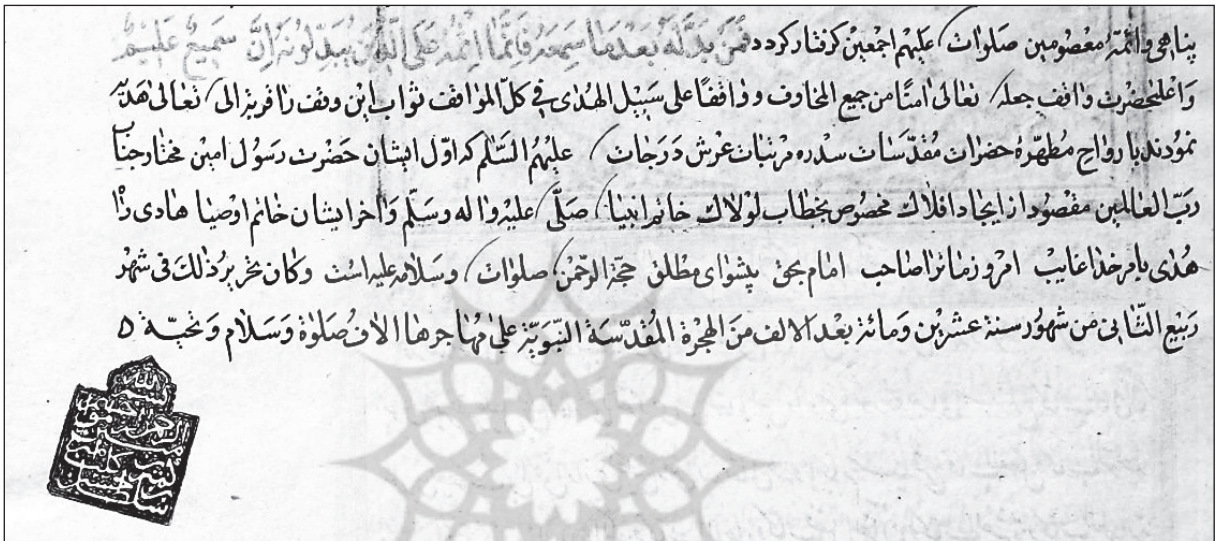 پناهی و ائمّهٔ معصومین صلوات علیهم اجمعین گرفتار گردد فَمَن بَدَّلَهُ بَعدَمَا سَمِعَهُ فَاِنَّمَا اِثمُهُ عَلَی الَّذینَ یُبَدِّلونَهُ اِنَّ سَمیعٌ عَلیمٌ
وَاعلیحضرت واقف جعله تعالی امنًا من جمیع المخاوف و واقفًا علی سَبیل الهُدٰی فی کلّ المواقف ثواب این وقف را قربة الی تعالی هدیّه
نمودند بارواح مطهّرهٔ حضرات مقدّسات سدره مرتبات عرش درجات علیهم السّلم که اوّل ایشان حَضرت رسول امین مختار جناب
ربّ العالمین مقصود از ایجاد افلاک مخصوص بخطاب لولاک خاتم انبیا صلّی علیه واله وسلّم واخر ایشان خاتم اوصیا هادی راه
هُدٰی بامر خدا غایب امروز زمانرا صاحب امام بحق پیشوای مطلق حجّة الرّحمٰن صلوات وسَلامه علیه است وکان تحریر ذٰلک فی شهر
رَبیع الثّانی من شهور سنة عشرین وَمائة بعد الالف منَ الهجرة المقدّسَة النّبویّة علی مُهاجرها الاف صَلوٰة وَسَلام وَتحیّة ۵